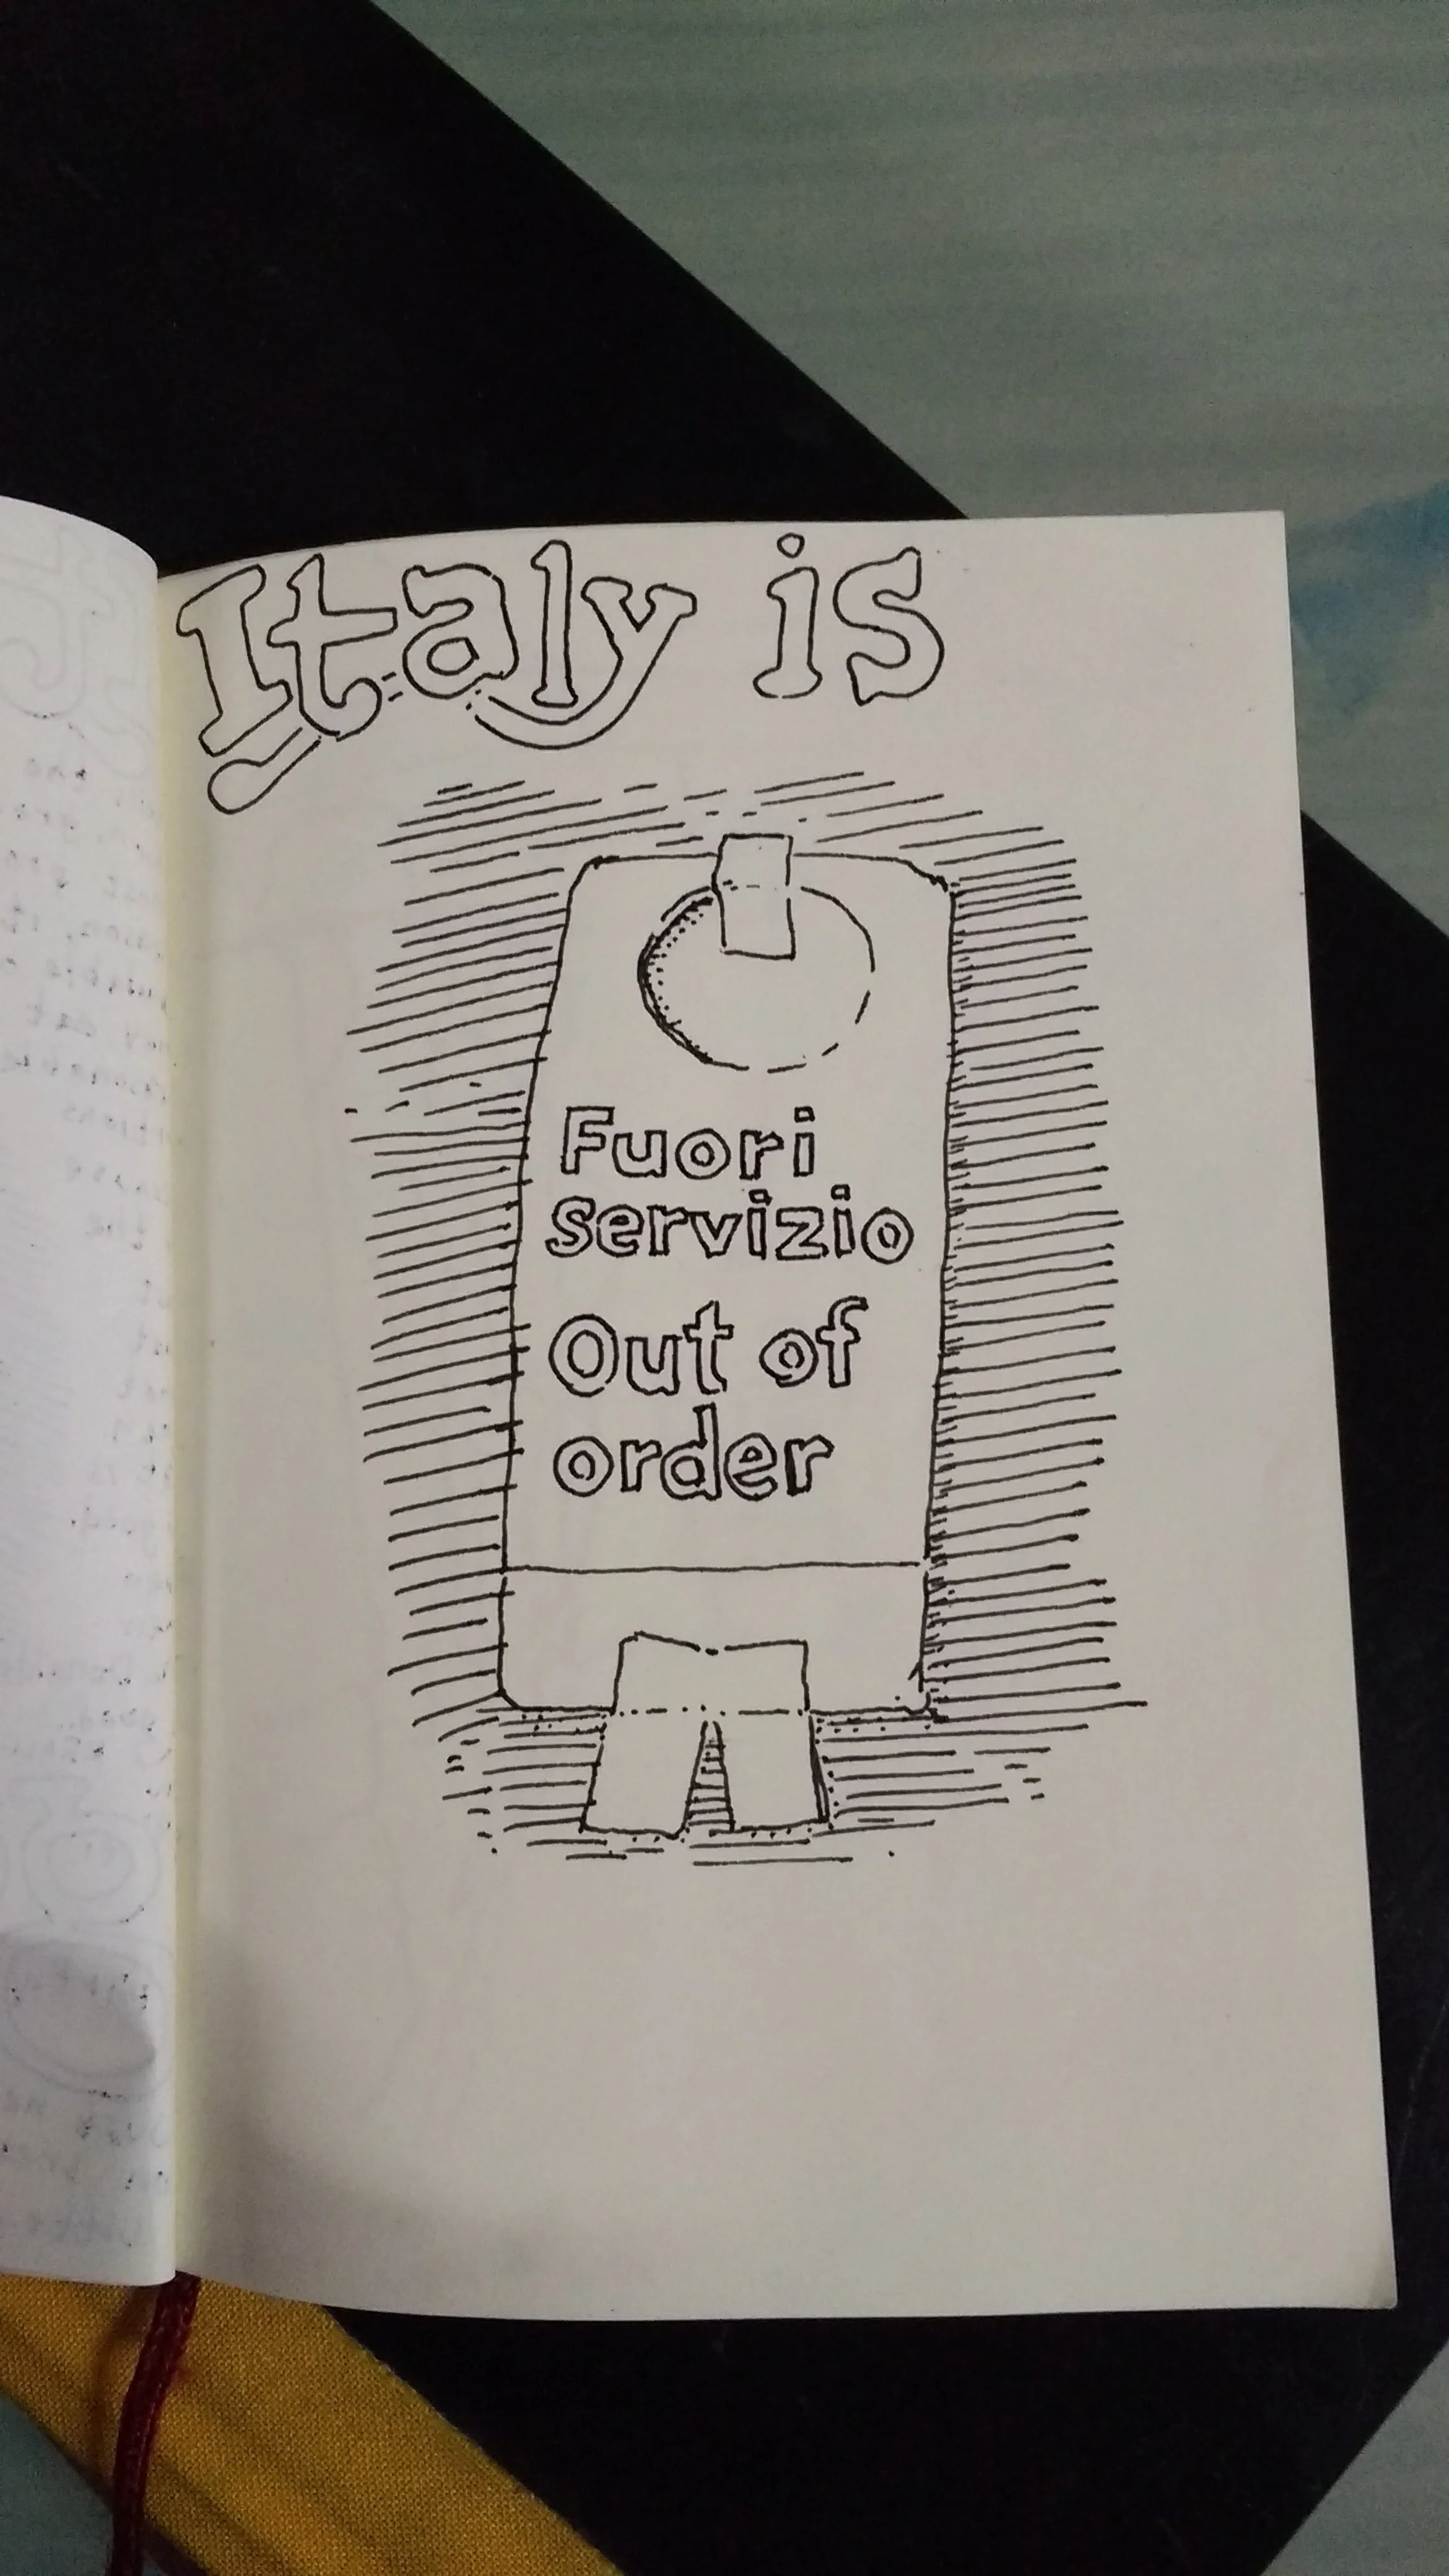 Italy is
Fuori
servizio
Out of
order